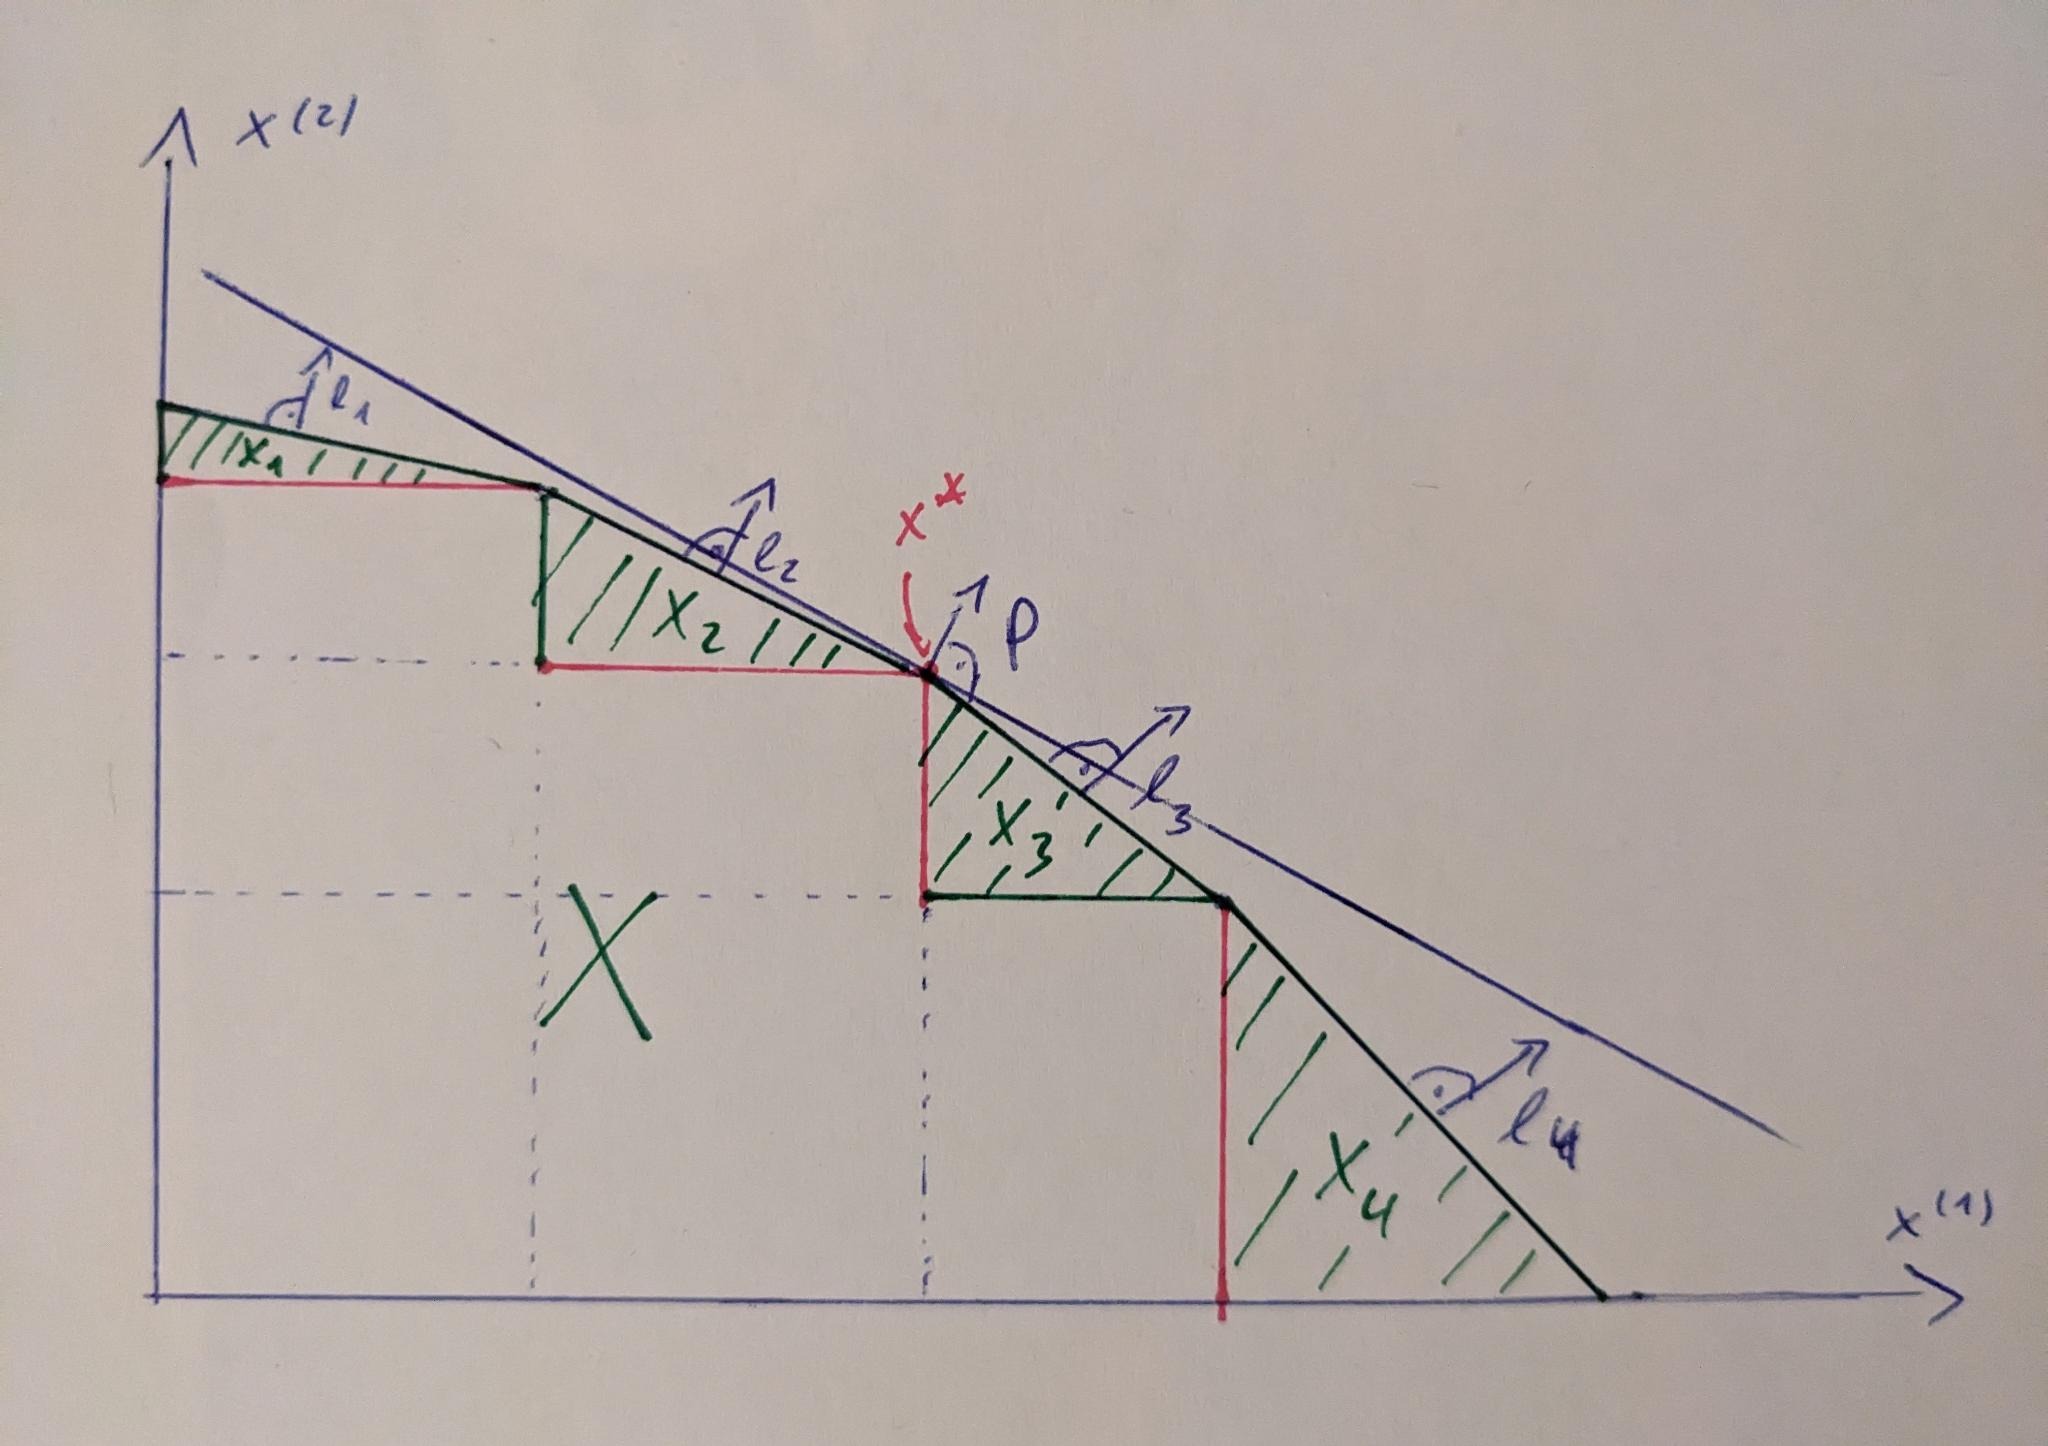 x(2)
l1
X1
l2
x*
X2
p
l3
X3
X
l4
X4
x(1)